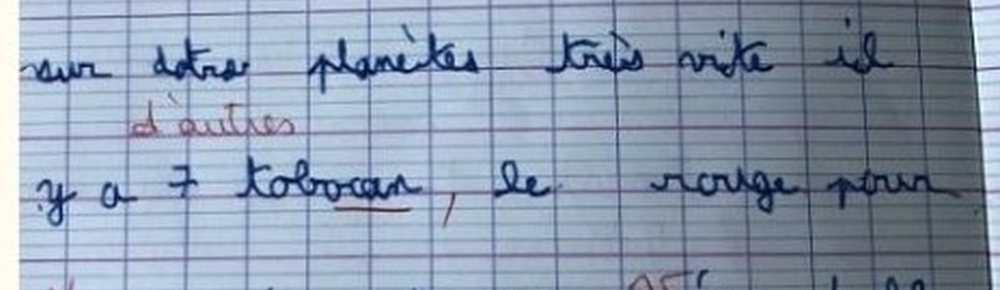 sur dotre planètes très vite il
d'autres
y a 7 tobocan, le rouge pour